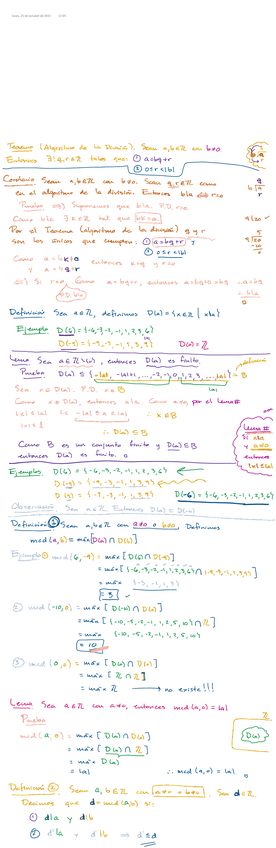 Teorema (Algoritmo de la División). Sean a,b∈ℤ con b≠0.
Entonces ∃! q,r∈ℤ tales que: ① a=bq+r
② 0≤r<|b|
Corolario Sean a,b∈ℤ con b≠0. Sean q,r∈ℤ como
en el algoritmo de la división. Entonces b|a ⇔ r=0
Prueba ⇒) Suponemos que b|a. P.D. r=0
Como b|a ∃k∈ℤ tal que bk=a
Por el Teorema (algoritmo de la división) q y r
son los únicos que cumplen: ① a=bq+r y
② 0≤r<|b|
Como a=bk+0 entonces k=q y r=0
y a=bq+r
⇐) Si r=0. Como a=bq+r, entonces a=bq+0=bq ∴a=bq
P.D. b|a ∴ b|a
Definición Sea a∈ℤ, definimos D(a)={x∈ℤ | x|a}
Ejemplo D(6)={-6,-3,-2,-1,1,2,3,6}
D(0)=ℤ
Lema Sea a∈ℤ\{0}, entonces D(a) es finito.
Prueba D(a) ⊆ {-|a|, -|a|+1, ..., -2,-1,0,1,2,3,...,|a|} = B
Sea x∈D(a). P.D. x∈B
Como x∈D(a), entonces x|a. Como a≠0 por el Lema
|x|≤|a| i.e. -|a|≤x≤|a| ∴ x∈B
∴ D(a)⊆B
Como B es un conjunto finito y D(a)⊆B
entonces D(a) es finito.
Lema
Si x|a
y a≠0
entonces
|x|≤|a|
Ejemplos D(6) = {-6,-3,-2,-1,1,2,3,6}
D(-6) = {-6,-3,-2,-1,1,2,3,6}
Observación. Sea a∈ℤ. Entonces D(a) = D(-a)
Definición ① Sean a,b∈ℤ con a≠0 o b≠0. Definimos
mcd(a,b) = máx[D(a)∩D(b)]
Ejemplo ① mcd(6,-9) = máx[D(6)∩D(-9)]
= máx {-3,-1,1,3}
= 3
② mcd(-10,0) = máx[D(-10)∩D(0)]
= máx[{-10,-5,-2,-1,1,2,5,10}∩ℤ]
= máx {-10,-5,-2,-1,1,2,5,10}
= 10
③ mcd(0,0) = máx[D(0)∩D(0)]
= máx[ℤ∩ℤ]
= máx ℤ → no existe!!!
Lema Sea a∈ℤ con a≠0, entonces mcd(a,0)=|a|
Prueba
mcd(a,0) = máx[D(a)∩D(0)]
= máx[D(a)∩ℤ]
= máx D(a)
= |a| ∴ mcd(a,0)=|a|
ℤ
D(a)
Definición ② Sean a,b∈ℤ con a≠0 o b≠0. Sea d∈ℤ.
Decimos que d=mcd(a,b) si:
① d|a y d|b
② d'|a y d'|b ⇒ d'≤d